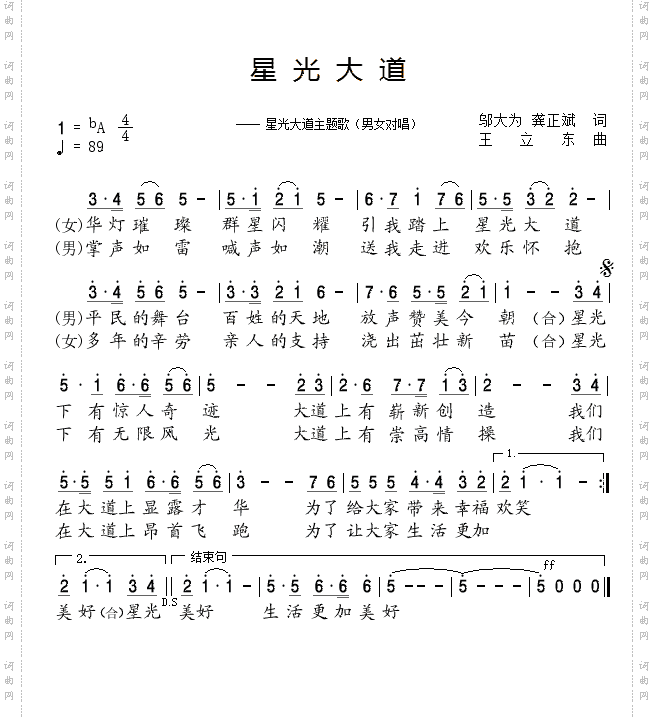 星光大道
1 = ♭A 4/4
♩ = 89
—— 星光大道主题歌（男女对唱）
邬大为 龚正斌 词
王立东 曲
3·4 5 6 5 - | 5·i 2 1 5 - | 6·7 1 7 6 | 5·5 3 2 2 - |
(女)华灯璀璨 群星闪耀 引我踏上 星光大道
(男)掌声如雷 喊声如潮 送我走进 欢乐怀抱
3·4 5 6 5 - | 3·3 2 1 6 - | 7·6 5·5 2 1 | 1 - - 3 4 |
(男)平民的舞台 百姓的天地 放声赞美今朝 (合)星光
(女)多年的辛劳 亲人的支持 浇出茁壮新苗 (合)星光
5·1 6·6 5 6 | 5 - - 2 3 | 2·6 7·7 1 3 | 2 - - 3 4 |
下有惊人奇迹 大道上有崭新创造 我们
下有无限风光 大道上有崇高情操 我们
1.
5·5 5 1 6·6 5 6 | 3 - - 7 6 | 5 5 5 4·4 3 2 | 2 1·1 - :|
在大道上显露才华 为了给大家带来幸福欢笑
在大道上昂首飞跑 为了让大家生活更加
2. 结束句 ff
2 1·1 3 4 || 2 1·1 - | 5·5 6·6 6 | 5 - - - | 5 - - - | 5 0 0 0 ||
美好(合)星光 D.S 美好 生活更加美好
词曲网